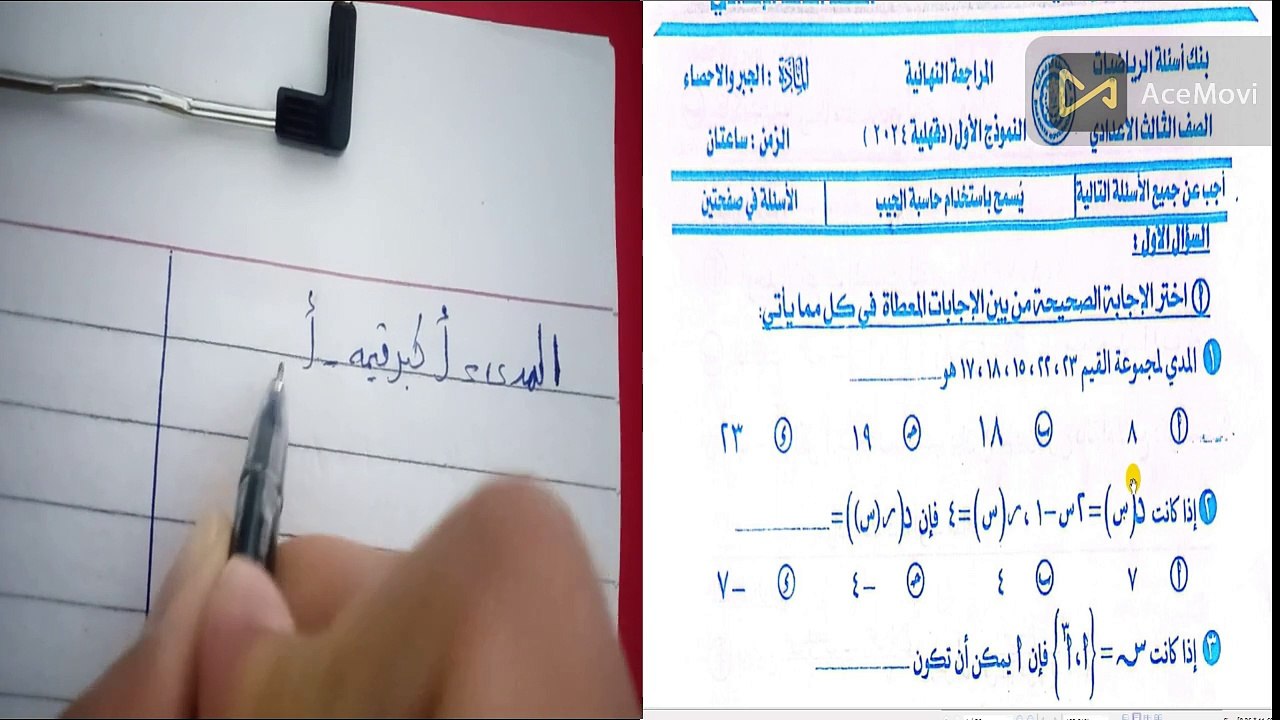 المدى = أكبر قيمه - أ
AceMovi
بنك أسئلة الرياضيات
المراجعة النهائية
المادة : الجبر والاحصاء
الصف الثالث الاعدادي
النموذج الأول (دقهلية ٢٠٢٤)
الزمن : ساعتان
أجب عن جميع الأسئلة التالية
يُسمح باستخدام حاسبة الجيب
الأسئلة في صفحتين
السؤال الأول :
أ اختر الإجابة الصحيحة من بين الإجابات المعطاة في كل مما يأتي:
١ المدي لمجموعة القيم ٢٣ ، ٢٢ ، ١٥ ، ١٨ ، ١٧ هو ..........
أ ٨ ب ١٨ ج ١٩ د ٢٣
٢ إذا كانت د(س) = ٢س - ١ ، ر(س) = ٤ فإن د(ر(س)) = ..........
أ ٧ ب ٤ ج -٤ د -٧
٣ إذا كانت س = {أ ، أ٣} فإن أ يمكن أن تكون ..........